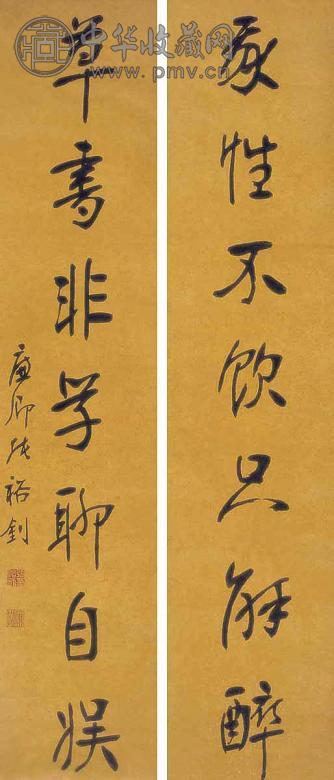 我性不饮只解醉
草书非学聊自娱
廉卿张裕钊
中华收藏网
www.pmv.cn